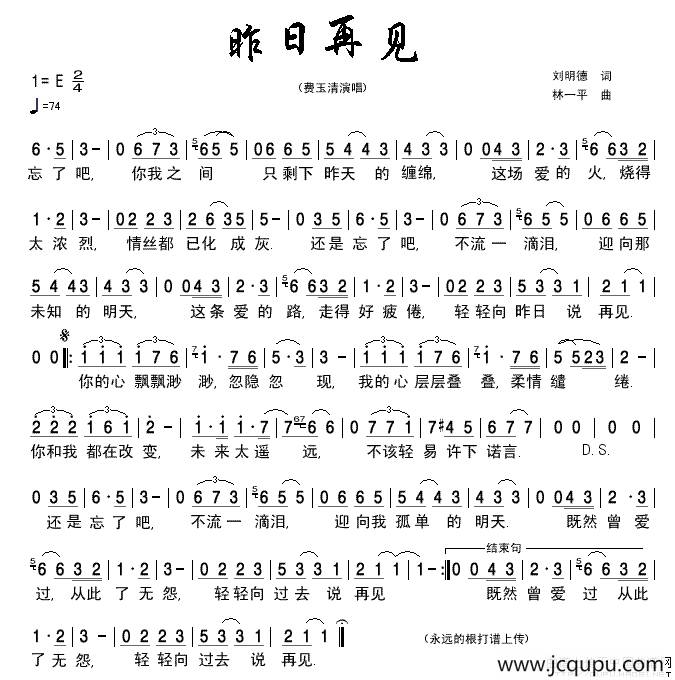 昨日再见
1=E 2/4
(费玉清演唱)
刘明德 词
♩=74
林一平 曲
6·5 | 3- | 0 6 7 3 | 5 6 5 5 | 0 6 6 5 | 3·5 | 5 4 4 3 | 4 3 3 | 0 0 4 3 | 2·3 | 5 6 6 3 2 |
忘了吧, 你我之间 只剩下昨天的缠绵, 这场爱的火,烧得
1·2 | 3- | 0 2 2 3 | 2 6 3 5 | 5- | 0 3 5 | 6·5 | 3- | 0 6 7 3 | 5 6 5 | 0 6 6 5 |
太浓烈, 情丝都已化成灰. 还是忘了吧, 不流一滴泪, 迎向那
5 4 4 3 | 4 3 3 | 0 0 4 3 | 2·3 | 5 6 6 3 2 | 1·2 | 3- | 0 2 2 3 | 5 3 3 1 | 2 1 1 | 1- |
未知的明天, 这条爱的路,走得好疲倦, 轻轻向昨日说再见.
你的心飘飘渺渺,忽隐忽现, 我的心层层叠叠,柔情缱绻.
你和我都在改变, 未来太遥远, 不该轻易许下诺言. D.S.
0 3 5 | 6·5 | 3- | 0 6 7 3 | 5 6 5 | 0 6 6 5 | 5 4 4 3 | 4 3 3 | 0 0 4 3 | 2·3 |
还是忘了吧, 不流一滴泪, 迎向我孤单的明天. 既然曾爱
结束句
5 6 6 3 2 | 1·2 | 3- | 0 2 2 3 | 5 3 3 1 | 2 1 1 | 1- :| 0 0 4 3 | 2·3 | 5 6 6 3 2 |
过,从此了无怨, 轻轻向过去说再见 既然曾爱过从此
1·2 | 3- | 0 2 2 3 | 5 3 3 1 | 2 1 1 | 1 ‖
(永远的根打谱上传)
了无怨, 轻轻向过去说再见.
www.jcqupu.com